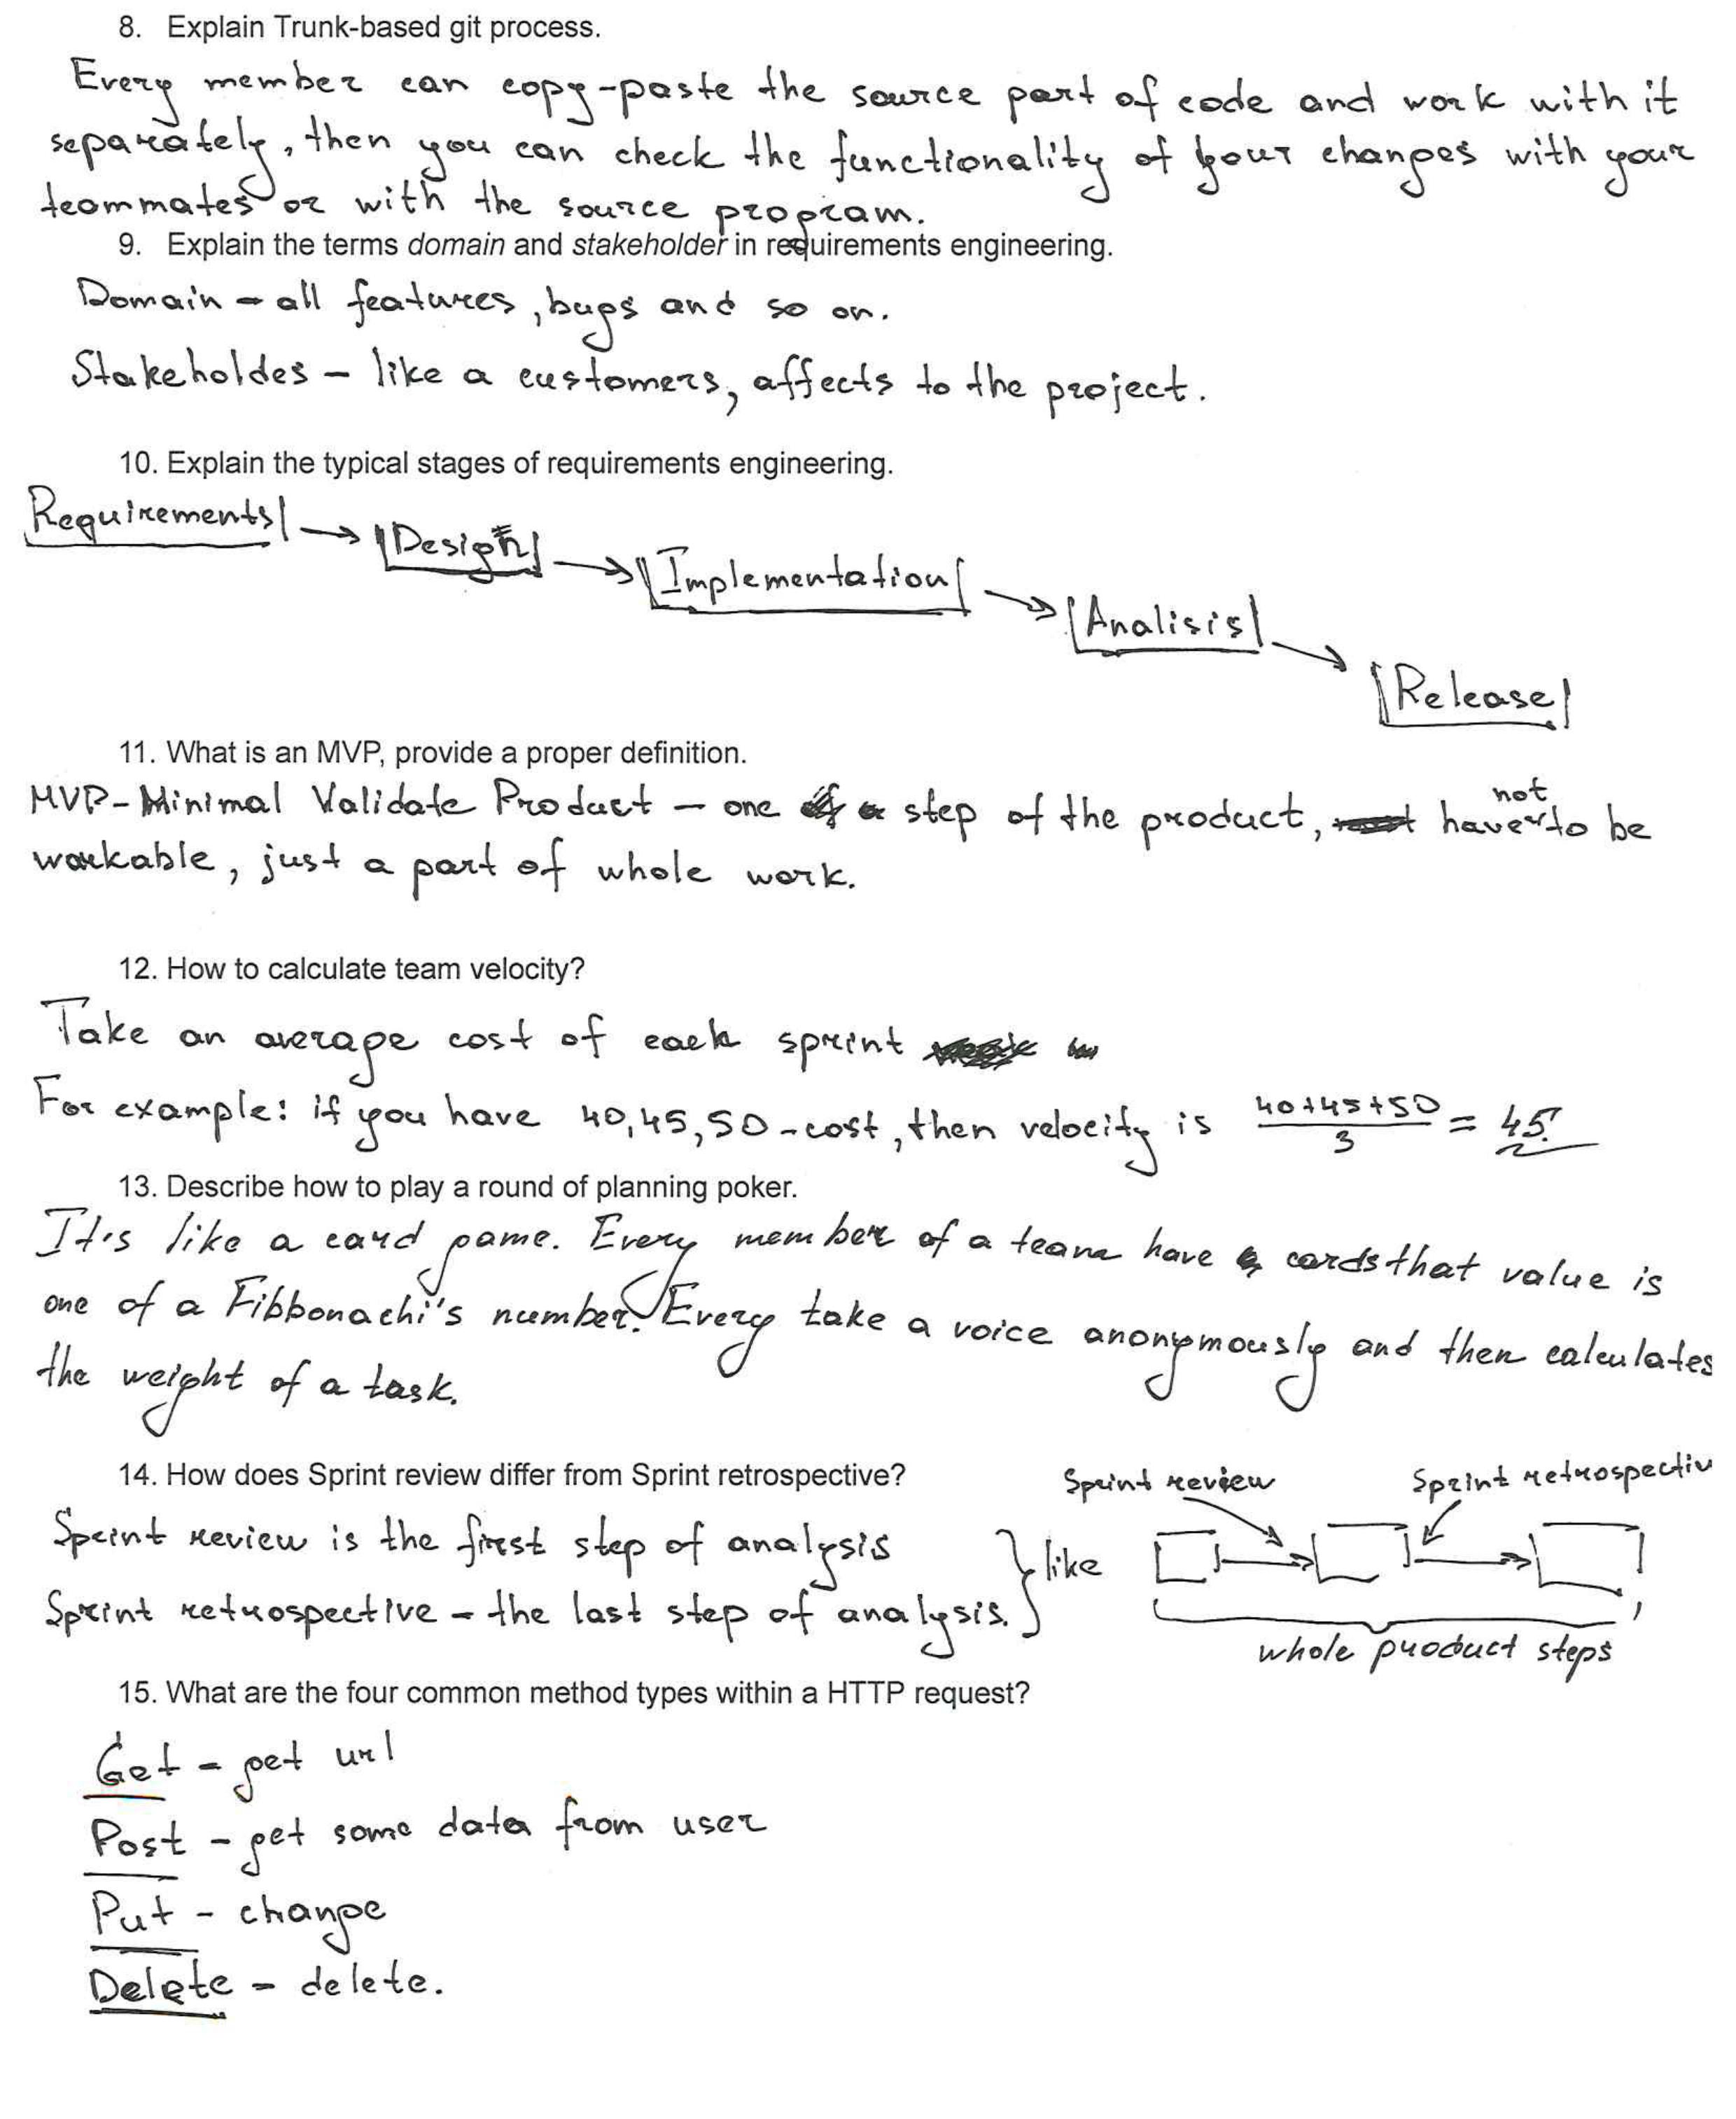 8. Explain Trunk-based git process.
Every member can copy-paste the source part of code and work with it
separately, then you can check the functionality of your changes with your
teammates or with the source program.
9. Explain the terms domain and stakeholder in requirements engineering.
Domain - all features, bugs and so on.
Stakeholdes - like a customers, affects to the project.
10. Explain the typical stages of requirements engineering.
Requirements → Design → Implementation → Analisis → Release
11. What is an MVP, provide a proper definition.
MVP - Minimal Validate Product - one step of the product, have not to be
workable, just a part of whole work.
12. How to calculate team velocity?
Take an average cost of each sprint
For example: if you have 40,45,50 - cost, then velocity is (40+45+50)/3 = 45.
13. Describe how to play a round of planning poker.
It's like a card game. Every member of a team have cards that value is
one of a Fibbonachi's number. Every take a voice anonymously and then calculates
the weight of a task.
14. How does Sprint review differ from Sprint retrospective?
Sprint review is the first step of analysis
Sprint retrospective - the last step of analysis.
like
Sprint review
Sprint retrospectiv
whole product steps
15. What are the four common method types within a HTTP request?
Get - get url
Post - get some data from user
Put - change
Delete - delete.